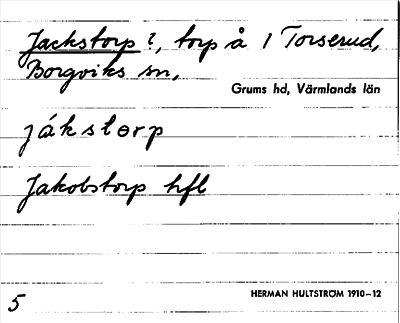 Jackstorp ?, torp å 1 Torserud,
Borgviks sn,
Grums hd, Värmlands län
jákstɵrp
Jakobstorp hfl
5
HERMAN HULTSTRÖM 1910–12